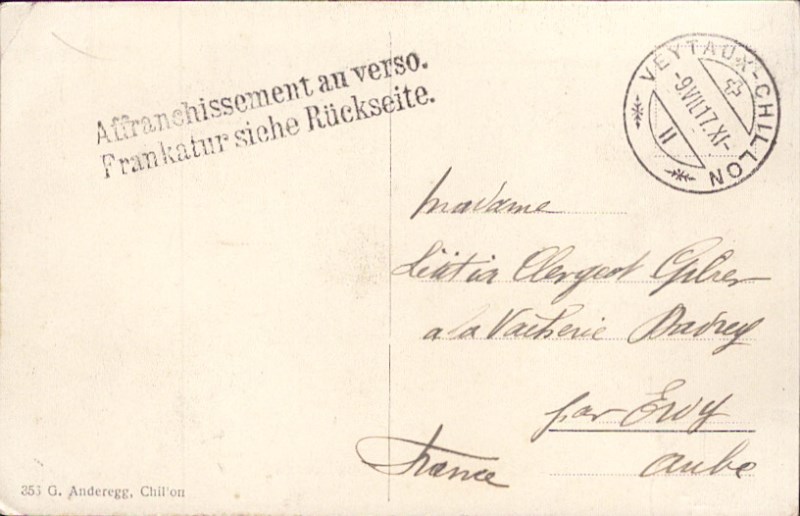 Affranchissement au verso.
Frankatur siehe Rückseite.
VEYTAUX-CHILLON
-9.VII.17.XI-
II
Madame
Clergeot
a la Vacherie
par Ervy
Aube
France
355 G. Anderegg, Chil'on